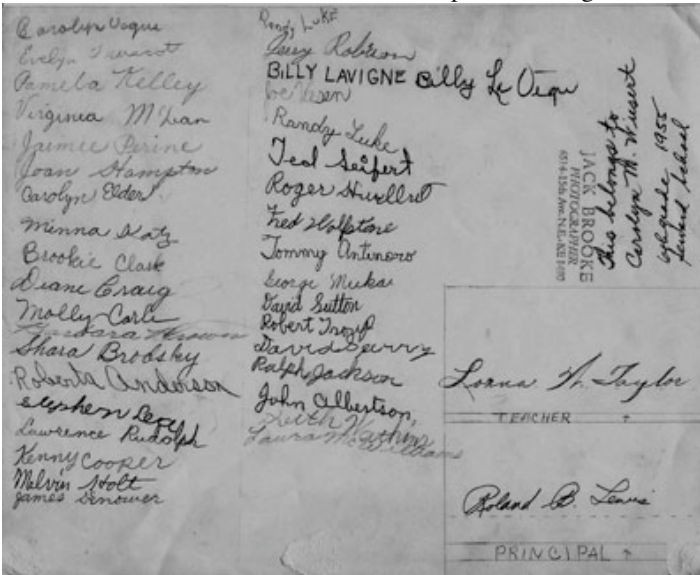 Carolyn Vogue
Evelyn
Pamela Kelley
Virginia McLan
Jaimee Perine
Joan Hampton
Carolyn Elder
Minna Katz
Brookie Clark
Diane Craig
Molly Carle
Barbara Brown
Shara Brodsky
Roberta Anderson
Stephen Levy
Lawrence Rudolph
Kenny Cooper
Melvin Holt
James Denower
Randy Luke
Robison
BILLY LAVIGNE Billy
Joe
Randy Luke
Ted Seifert
Roger
Fred Wolfstone
Tommy Antinoro
George
David Sutton
Robert
David
Ralph Jackson
John Albertson
Keith Watkins
Laura McWilliams
JACK BROOKE
PHOTOGRAPHER
6514-15th Ave. N.E.
This belongs to
Carolyn M. Wiesert
6th grade 1955
School
Lorna W. Taylor
TEACHER ↑
Roland B. Lewis
PRINCIPAL ↑